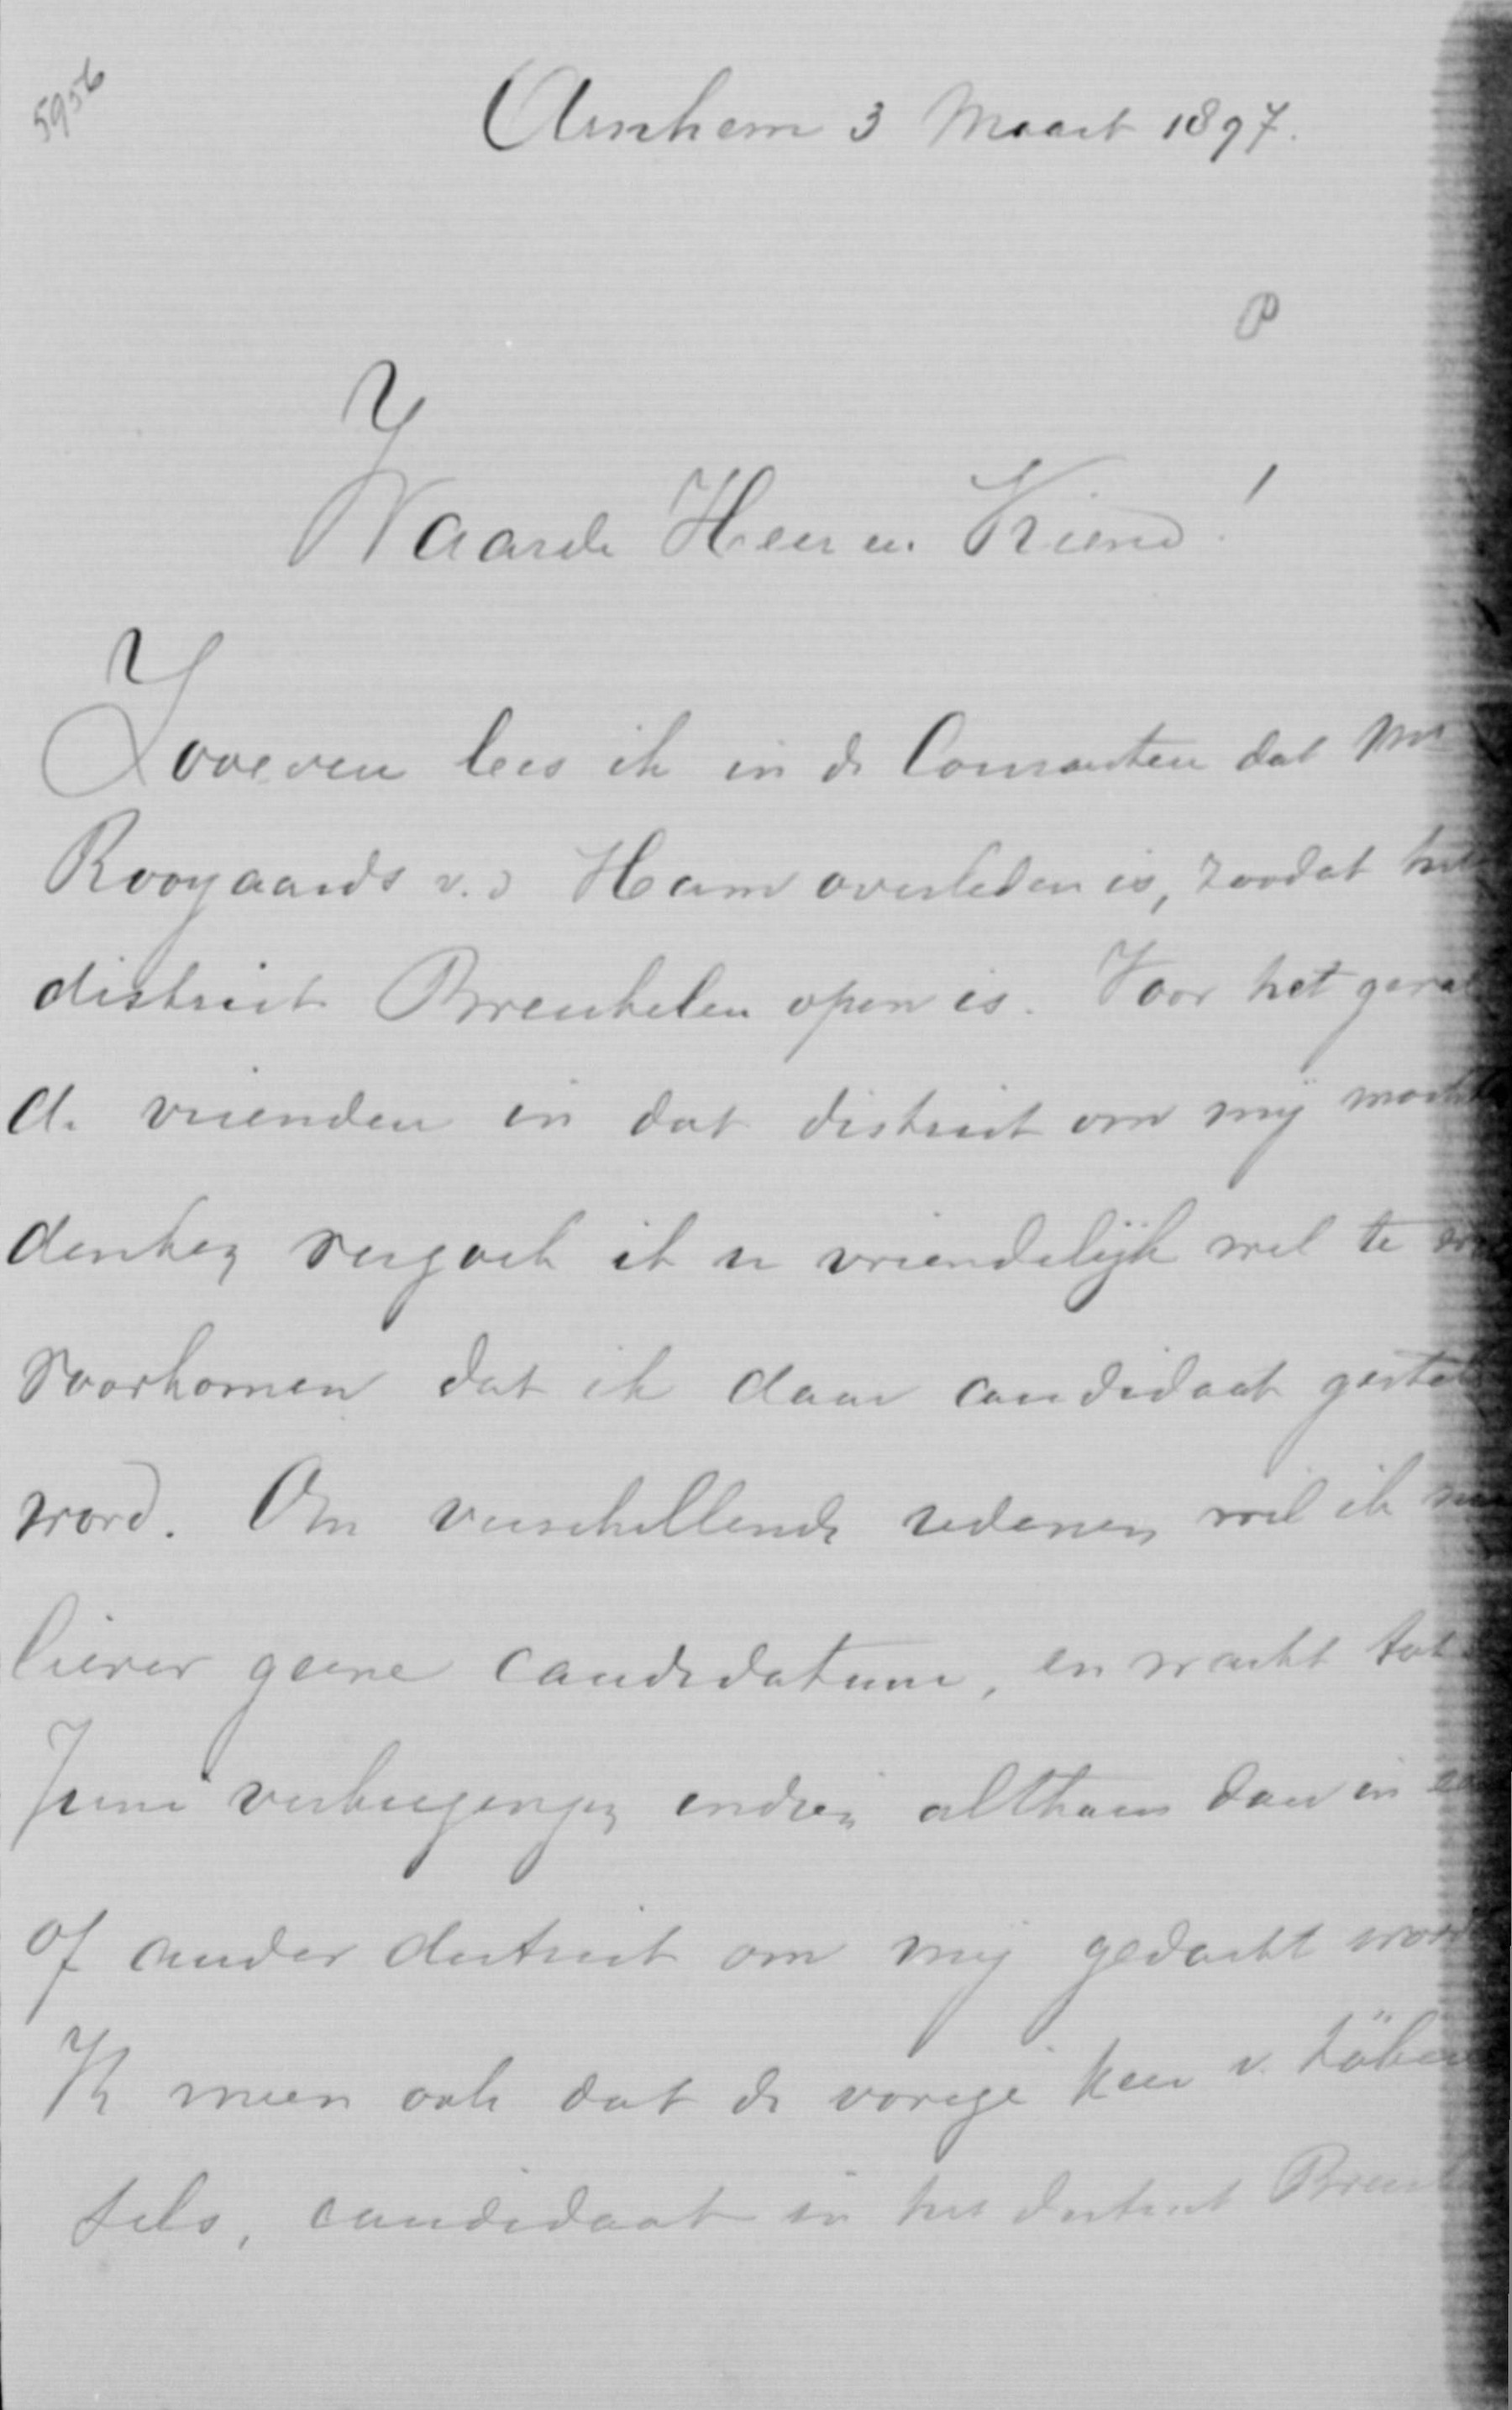 5956
Arnhem 3 Maart 1897.
Waarde Heer en Vriend!
Zooeven lees ik in de Couranten dat Mr
Rooyaards v.d Ham overleden is, zoodat het
district Breukelen open is. Voor het geval
de vrienden in dat district om mij mocht
denken verzoek ik u vriendelijk wel te
voorkomen dat ik daar candidaat gesteld
word. Om verschillende redenen wil ik nu
liever geene candidatuur, en wacht tot
Juni verkiezingen indien althans dan in een
of ander district om mij gedacht word
Ik meen ook dat de vorige keer v. Löben
Sels, candidaat in het district Breuk